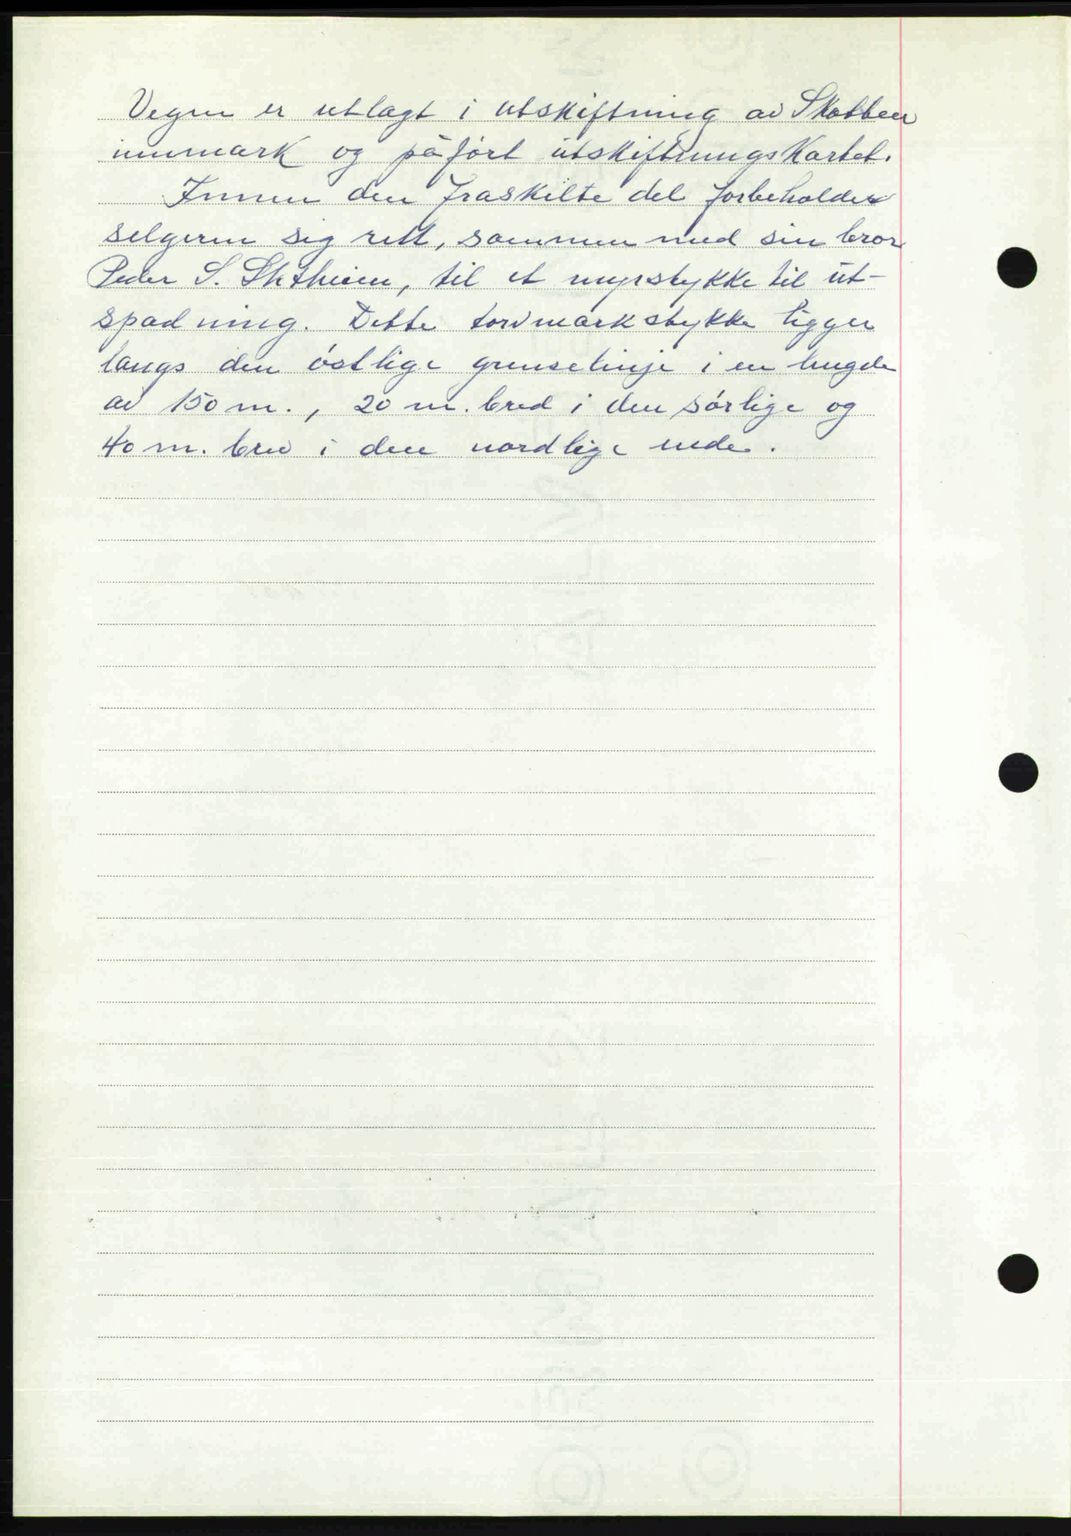 Vegen er utlagt i utskiftning av Skobben
innmark og påført utskiftningskartet.
Innen den fraskilte del forbeholder
selgeren sig rett, sammen med sin bror
Peder S. , til et myrstykke til ut-
spadning. Dette torvmarkstykke ligger
langs den östlige grenselinje i en lengde
av 150 m., 20 m. bred i den sørlige og
40 m. bred i den nordlige ende.